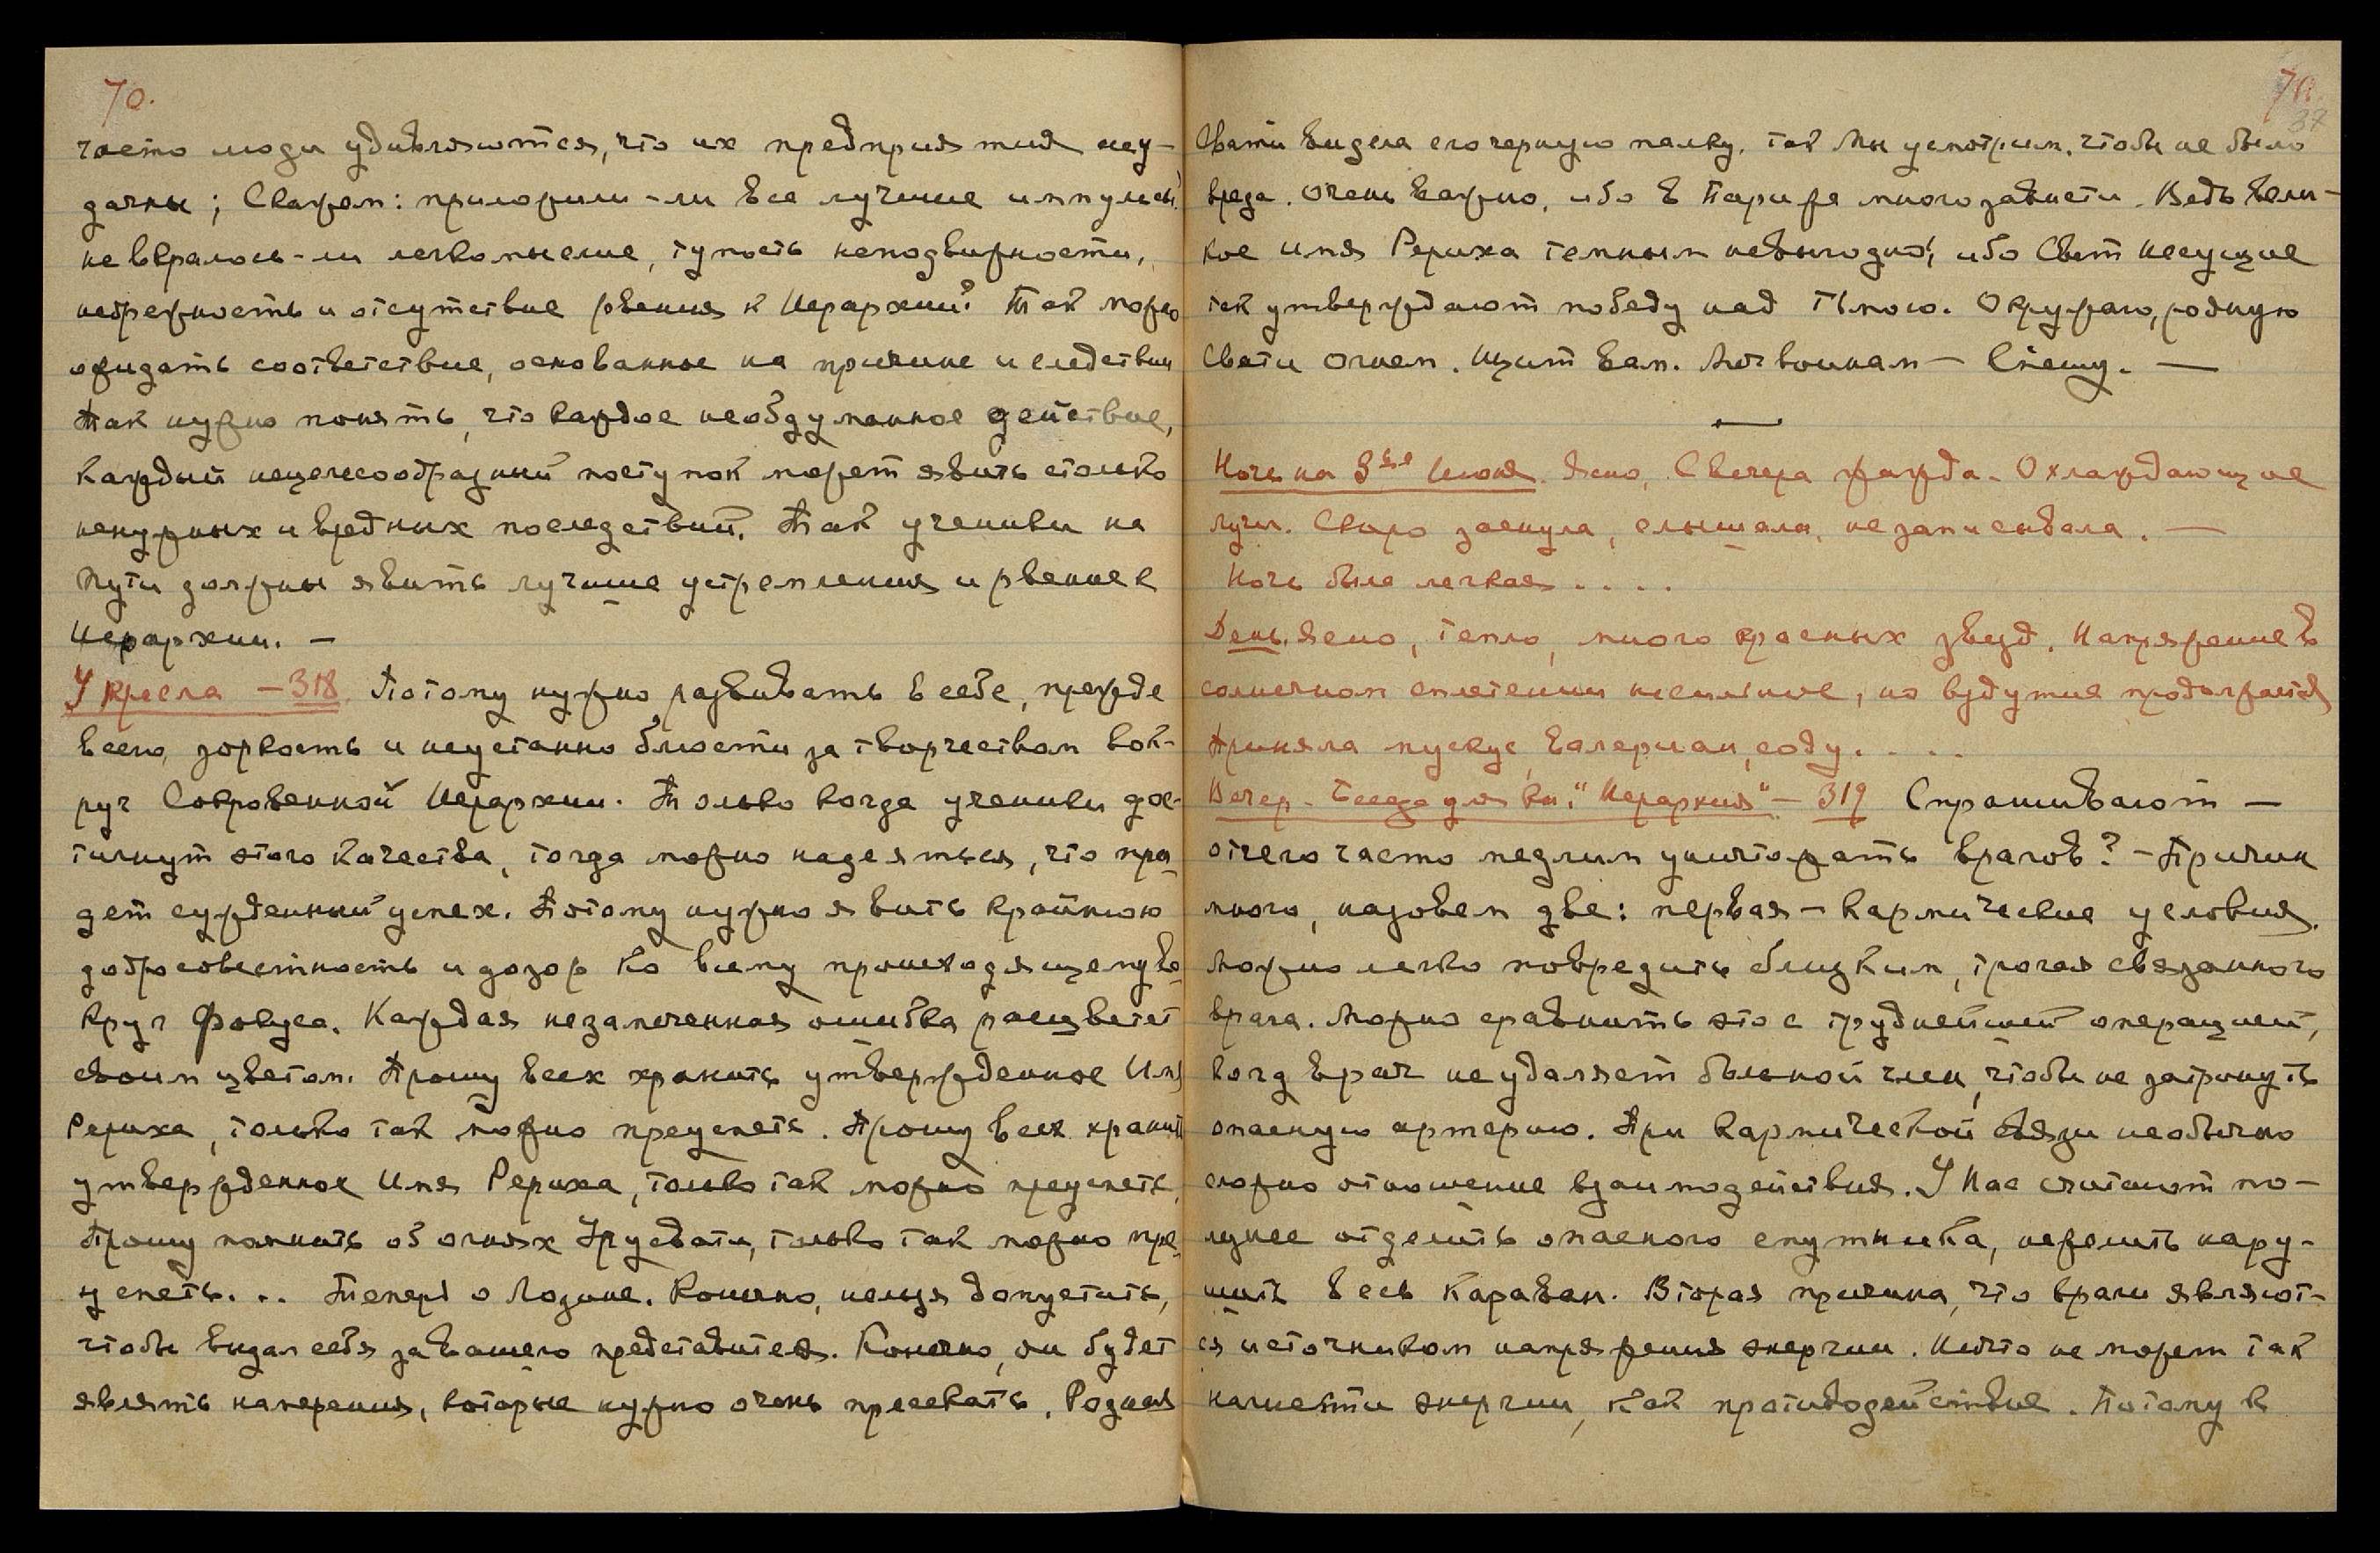 70.
часто люди удивляются, что их предприятия неу-
дачны; Скажем: приложили-ли все лучшие импульсы?
не вкралось-ли легкомыслие, тупость неподвижности,
небрежность и отсутствие рвения к Иерархии? Так можно
ожидать соответствие, основанное на причине и следствии
Так нужно понять, что каждое необдуманное действие,
каждый нецелесообразный поступок может явить столько
ненужных и вредных последствий. Так ученики на
Пути должны явить лучшие устремления и рвение к
Иерархии. —
У кресла — 318. Потому нужно развивать в себе, прежде
всего, зоркость и неустанно блюсти за творчеством вок-
руг Сокровенной Иерархии. Только когда ученики дос-
тигнут этого качества, тогда можно надеяться, что при-
дет сужденный успех. Потому нужно явить крайнюю
добросовестность и дозор ко всему происходящему во-
круг Фокуса. Каждая незамеченная ошибка расцветет
своим цветом. Прошу всех хранить утвержденное Имя
Рериха, только так можно преуспеть. Прошу всех хранить
утвержденное Имя Рериха, только так можно преуспеть,
Прошу помнить об огнях Урусвати, только так можно пре-
успеть... Теперь о Лозине. Конечно, нельзя допустить,
чтобы выдал себя за вашего представителя. Конечно, он будет
являть намерения, которые нужно очень пресекать. Родная
70
37
Свати видела его черную палку. Так Мы усмотрим, чтобы не было
вреда. Очень важно, ибо в Париже много зависти. Ведь вели-
кое имя Рериха темным невыгодно, ибо Свет несущие
так утверждают победу над тьмою. Окружаю, родную
Свати Огнем. Щит вам. Мог воинам — Спешу. —
Ночь на 3ье Июня. Ясно, С вечера жажда. Охлаждающие
лучи. Скоро заснула, слышала, не записывала. —
Ночь была легкая....
День. Ясно, тепло, много красных звезд. Напряжение в
солнечном сплетении несильное, но вздутие продолжается
Приняла мускус, валериан, соду....
Вечер. Беседа для кн. "Иерархия" — 319 Спрашивают —
отчего часто медлим уничтожать врагов? — Причин
много, назовем две: первая — кармические условия.
Можно легко повредить близким, трогая связанного
врага. Можно сравнить это с труднейшей операцией,
когд врач не удаляет больной член, чтобы не затронуть
опасную артерию. При кармической связи необычно
сложно отношение взаимодействия. У Нас считают по-
лезнее отделить опасного спутника, нежели нару-
шить весь караван. Вторая причина, что враги являют-
ся источником напряжения энергии. Ничто не может так
нагнести энергии, как противодействие. Потому к